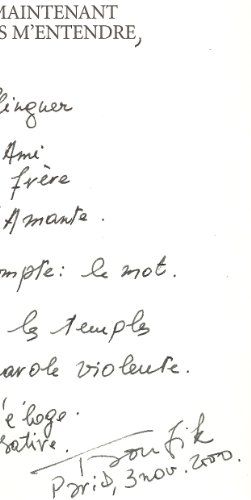 MAINTENANT
S M'ENTENDRE,
linguer
Ami
frère
Amante.
ompte: le mot.
les temples
arole violente.
'éloge.
sative.
Toufik
Paris, 3 nov. 2000.